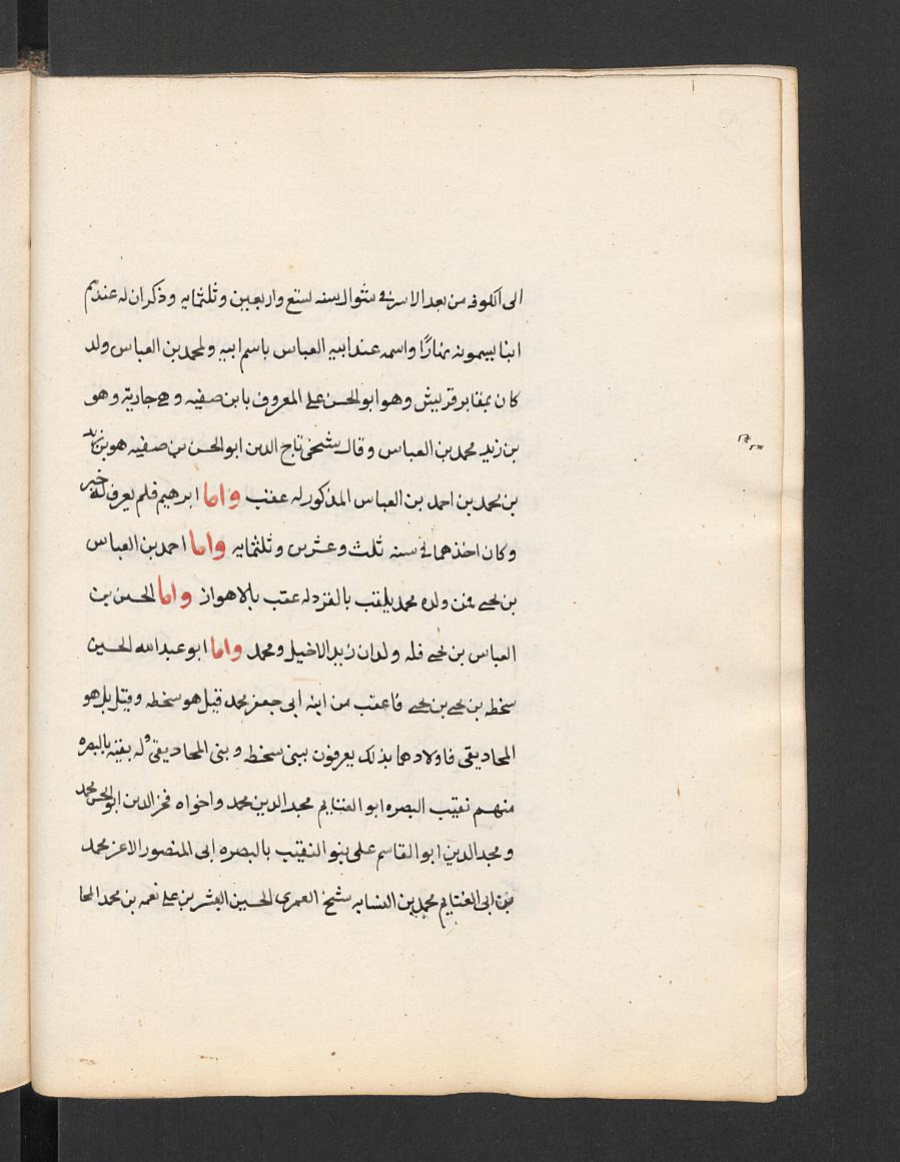 الى الكوفه من بعد الاسر فى شوال سنه تسع واربعين وثلثمايه وذكر ان له عندهم
ابنا يسمونه بمنارًا واسمه عند ابيه العباس باسم ابيه ولمحمد بن العباس ولد
كان بمقابر قريش وهو ابو الحسن على المعروف بابن صفيه وهى جاريته وهو
بن زيد محمد بن العباس وقال شيخى تاج الدين ابو الحسن بن صفيه هو بن زيد
بن محمد بن احمد بن العباس المذكور له عقب واما ابرهيم فلم يعرف له خبر
وكان اخذهما فى سنه ثلث وعشرين وثلثمايه واما احمد بن العباس
بن يحيى فمن ولده محمد يلقب بالفرد له عقب بالاهواز واما الحسن بن
العباس بن يحيى فله ولدان زيد الاخيل ومحمد واما ابو عبد الله الحسين
سخطه بن يحيى بن يحيى فاعقب من ابنه ابى جعفر محمد قيل هو سخطه وقيل بل هو
المحاديقى فاولادهما بذلك يعرفون ببنى سخطه وبنى المحاديقى وله بقيه بالبصره
منهم نقيب البصره ابو الغنايم مجد الدين محمد واخواه فخر الدين ابو الحسن محمد
ومجد الدين ابو القاسم على بنو النقيب بالبصره ابى المنصور الاعز محمد
بن ابى الغنايم محمد بن النسابه شيخ العمرى الحسين البشر بن على نعمه بن محمد المحا